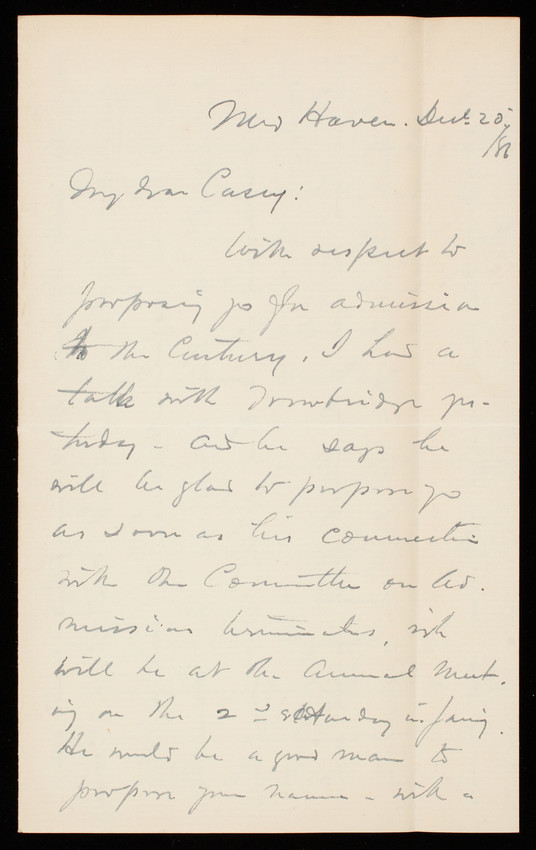 New Haven. Dec. 25,
/86
My dear Casey:
With respect to
proposing yo for admission
to the Century, I had a
talk with Trowbridge yes-
terday - and he says he
will be glad to propose yo
as soon as his connection
with the Committee on Ad.
mission terminates, wh
will be at the Annual Meet.
ing on the 2nd Saturday in Jany.
He would be a good man to
propose your name - with a